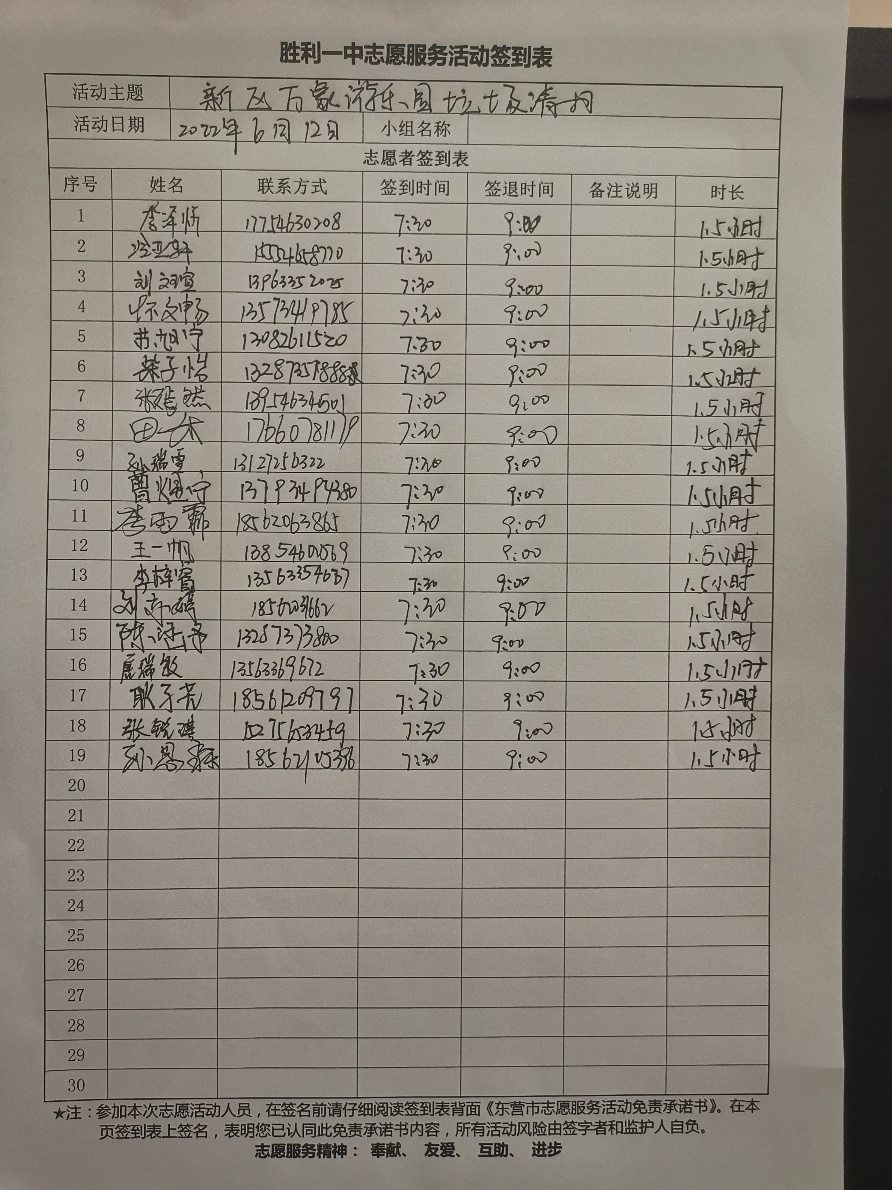 胜利一中志愿服务活动签到表
活动主题 新区万象游乐园垃圾清扫
活动日期 2022年6月12日 小组名称
志愿者签到表
序号 姓名 联系方式 签到时间 签退时间 备注说明 时长
1 17754630208 7:30 9:00 1.5小时
2 15554658770 7:30 9:00 1.5小时
3 刘文宣 13963352025 7:30 9:00 1.5小时
4 13573419785 7:30 9:00 1.5小时
5 13082611520 7:30 9:00 1.5小时
6 荣子怡 7:30 9:00 1.5小时
7 13954634501 7:30 9:00 1.5小时
8 17660781179 7:30 9:00 1.5小时
9 孙瑞雪 13127256322 7:30 9:00 1.5小时
10 13793494380 7:30 9:00 1.5小时
11 李雨霏 18562063865 7:30 9:00 1.5小时
12 王一帆 13854600569 7:30 9:00 1.5小时
13 李梓睿 13563354637 7:30 9:00 1.5小时
14 7:30 9:00 1.5小时
15 13287373800 7:30 9:00 1.5小时
16 13563369672 7:30 9:00 1.5小时
17 耿子芃 18561209797 7:30 9:00 1.5小时
18 张锐琪 15275653459 7:30 9:00 1.5小时
19 7:30 9:00 1.5小时
20
21
22
23
24
25
26
27
28
29
30
★注：参加本次志愿活动人员，在签名前请仔细阅读签到表背面《东营市志愿服务活动免责承诺书》。在本
页签到表上签名，表明您已认同此免责承诺书内容，所有活动风险由签字者和监护人自负。
志愿服务精神： 奉献、 友爱、 互助、 进步